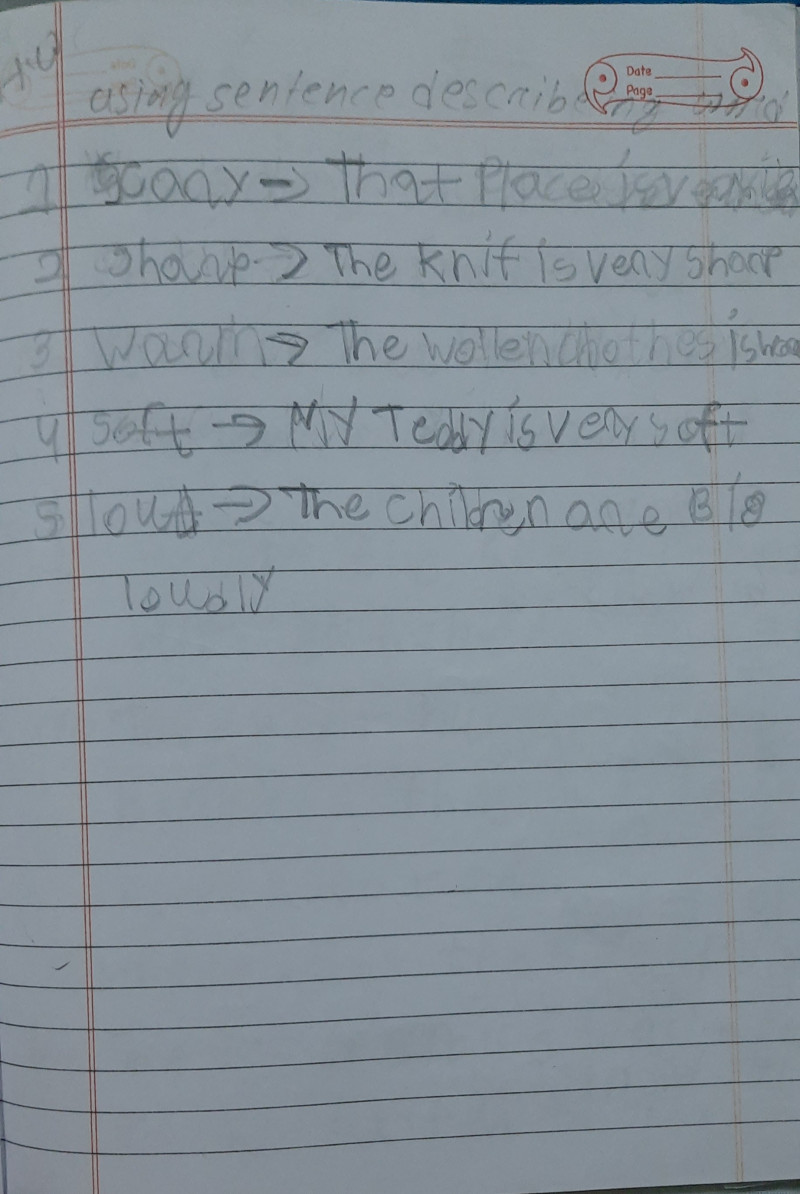 H.W
using sentence describing word
Date
Page
1 Scary → That Place is very
2 Sharp → The knif is very sharp
3 Warm → The wollen chothes is
4 Soft → My Teddy is very soft
5 loud → The children are
loudly